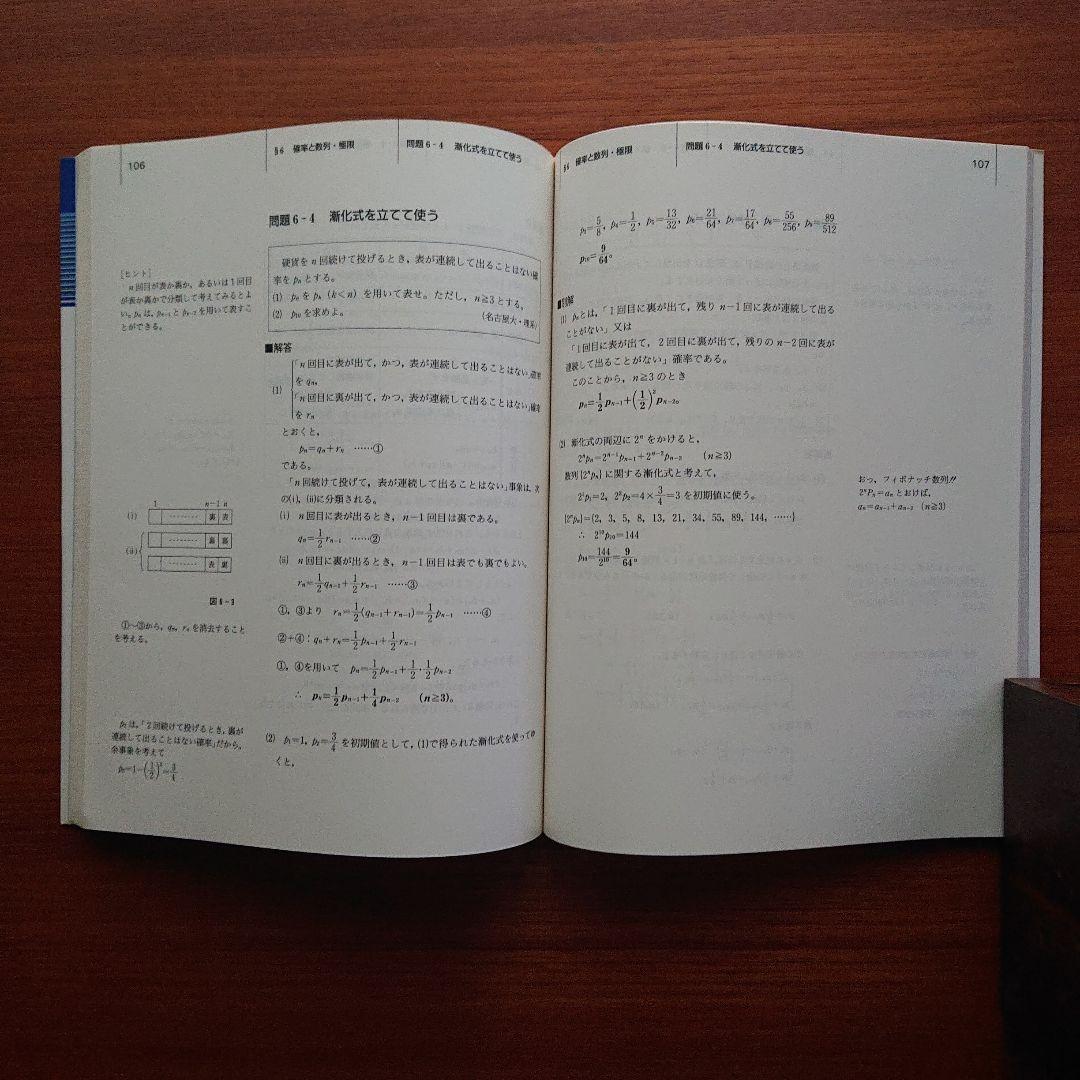 106
§6 確率と数列・極限
問題6-4 漸化式を立てて使う
問題6-4 漸化式を立てて使う
硬貨を n 回続けて投げるとき，表が連続して出ることはない確
率を pₙ とする。
(1) pₙ を pₖ (k<n) を用いて表せ。ただし，n≧3 とする。
(2) p₁₀ を求めよ。
(名古屋大・理系)
[ヒント]
n 回目が表か裏か，あるいは1回目
が表か裏かで分類して考えてみるとよ
い。pₙ は，pₙ₋₁ と pₙ₋₂ を用いて表すこ
とができる。
■解答
(1)
「n 回目に表が出て，かつ，表が連続して出ることはない」確率
を qₙ，
「n 回目に裏が出て，かつ，表が連続して出ることはない」確率
を rₙ
とおくと，
pₙ=qₙ+rₙ ……①
である。
「n 回続けて投げて，表が連続して出ることはない」事象は，次
の(i)，(ii)に分類される。
(i) n 回目に表が出るとき，n−1 回目は裏である。
qₙ=1/2 rₙ₋₁ ……②
(ii) n 回目に裏が出るとき，n−1 回目は表でも裏でもよい。
rₙ=1/2 qₙ₋₁+1/2 rₙ₋₁ ……③
①，③より rₙ=1/2(qₙ₋₁+rₙ₋₁)=1/2 pₙ₋₁ ……④
②+④：qₙ+rₙ=1/2 pₙ₋₁+1/2 rₙ₋₁
①，④を用いて pₙ=1/2 pₙ₋₁+1/2・1/2 pₙ₋₂
∴ pₙ=1/2 pₙ₋₁+1/4 pₙ₋₂ (n≧3)。
(2) p₁=1, p₂=3/4 を初期値として，(1)で得られた漸化式を使ってゆ
くと，
1 n−1 n
(i) ……… 裏 表
(ii) ……… 裏 裏
……… 表 裏
図6-3
①〜③から，qₙ，rₙ を消去すること
を考える。
p₂ は，「2回続けて投げるとき，裏が
連続して出ることはない確率」だから，
余事象を考えて
p₂=1−(1/2)²=3/4
§6 確率と数列・極限
問題6-4 漸化式を立てて使う
107
p₃=5/8, p₄=1/2, p₅=13/32, p₆=21/64, p₇=17/64, p₈=55/256, p₉=89/512
p₁₀=9/64。
■別解
(1) pₙ とは，「1回目に裏が出て，残り n−1 回に表が連続して出る
ことがない」又は
「1回目に表が出て，2回目に裏が出て，残りの n−2 回に表が
連続して出ることがない」確率である。
このことから，n≧3 のとき
pₙ=1/2 pₙ₋₁+(1/2)² pₙ₋₂。
(2) 漸化式の両辺に 2ⁿ をかけると，
2ⁿpₙ=2ⁿ⁻¹pₙ₋₁+2ⁿ⁻²pₙ₋₂ (n≧3)
数列{2ⁿpₙ}に関する漸化式と考えて，
2¹p₁=2, 2²p₂=4×3/4=3 を初期値に使う。
{2ⁿpₙ}={2, 3, 5, 8, 13, 21, 34, 55, 89, 144, ……}
∴ 2¹⁰p₁₀=144
p₁₀=144/2¹⁰=9/64。
おっ，フィボナッチ数列!!
2ⁿPₙ=aₙ とおけば，
aₙ=aₙ₋₁+aₙ₋₂ (n≧3)